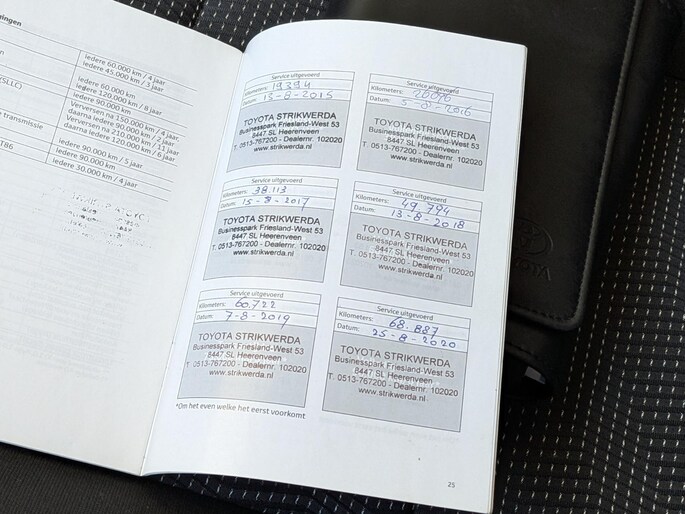 iedere 60.000 km / 4 jaar
iedere 45.000 km / 3 jaar
iedere 60.000 km
iedere 120.000 km / 8 jaar
Verversen na 150.000 km / 4 jaar
daarna iedere 60.000 km / 2 jaar
Verversen na 210.000 km / 11 jaar
daarna iedere 120.000 km / 6 jaar
transmissie
iedere 90.000 km / 5 jaar
iedere 90.000 km
iedere 30.000 km / 4 jaar
Service uitgevoerd
Kilometers: 19394
Datum: 13-8-2015
TOYOTA STRIKWERDA
Businesspark Friesland-West 53
8447 SL Heerenveen
T. 0513-767200 - Dealernr. 102020
www.strikwerda.nl
Service uitgevoerd
Kilometers:
Datum: 5-8-2016
TOYOTA STRIKWERDA
Businesspark Friesland-West 53
8447 SL Heerenveen
T. 0513-767200 - Dealernr. 102020
www.strikwerda.nl
Service uitgevoerd
Kilometers: 38.113
Datum: 15-8-2017
TOYOTA STRIKWERDA
Businesspark Friesland-West 53
8447 SL Heerenveen
T. 0513-767200 - Dealernr. 102020
www.strikwerda.nl
Service uitgevoerd
Kilometers: 49.794
Datum: 13-8-2018
TOYOTA STRIKWERDA
Businesspark Friesland-West 53
8447 SL Heerenveen
T. 0513-767200 - Dealernr. 102020
www.strikwerda.nl
Service uitgevoerd
Kilometers: 60.722
Datum: 7-8-2019
TOYOTA STRIKWERDA
Businesspark Friesland-West 53
8447 SL Heerenveen
T. 0513-767200 - Dealernr. 102020
www.strikwerda.nl
Service uitgevoerd
Kilometers: 68.887
Datum: 25-8-2020
TOYOTA STRIKWERDA
Businesspark Friesland-West 53
8447 SL Heerenveen
T. 0513-767200 - Dealernr. 102020
www.strikwerda.nl
*Om het even welke het eerst voorkomt
25